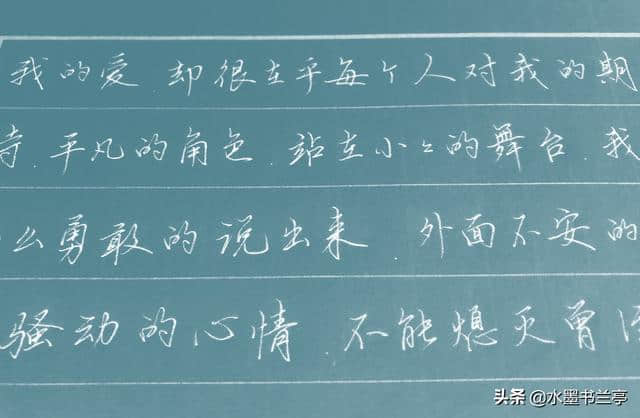 我的爲.却很在乎每个人对我的期
待.平凡的角色.站在小小的舞台.我
么勇敢的说出来.外面不安的
骚动的心情.不能熄灭曾
头条 @水墨书兰亭